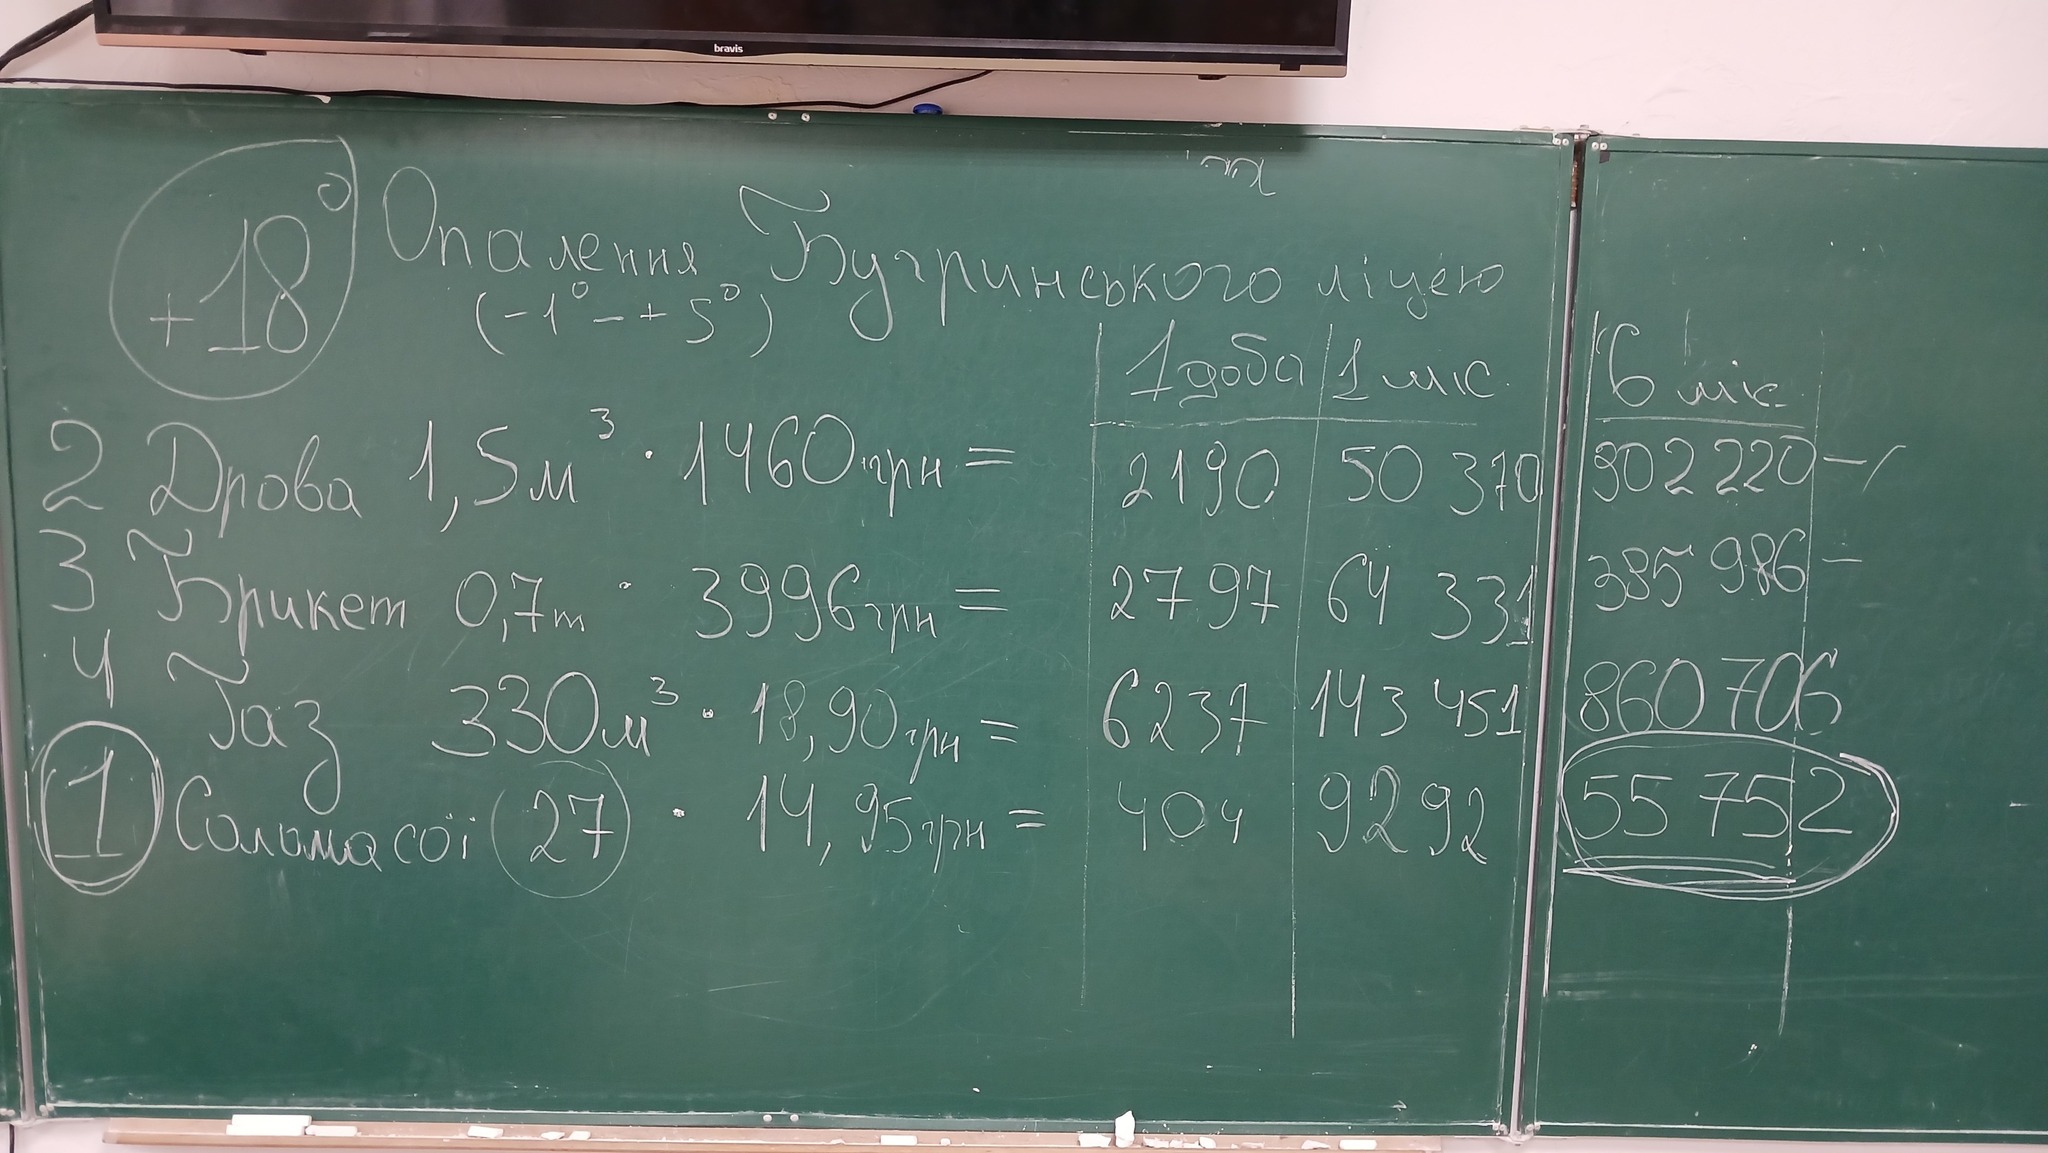 bravis
+18° Опалення Бугринського ліцею
(-1° - +5°)
1 доба 1 міс 6 міс
2 Дрова 1,5м³ · 1460грн = 2190 50 370 302 220 -
3 Брикет 0,7т · 3996грн = 2797 64 331 385 986 -
4 Газ 330м³ · 18,90грн = 6237 143 451 860 706
1 Солома сої 27 · 14,95грн = 404 9292 55 752